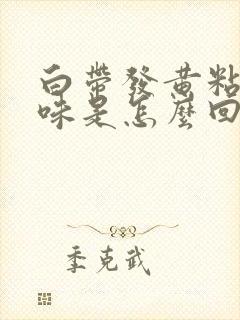 白帶發黃粘
味是怎麼回
季克武